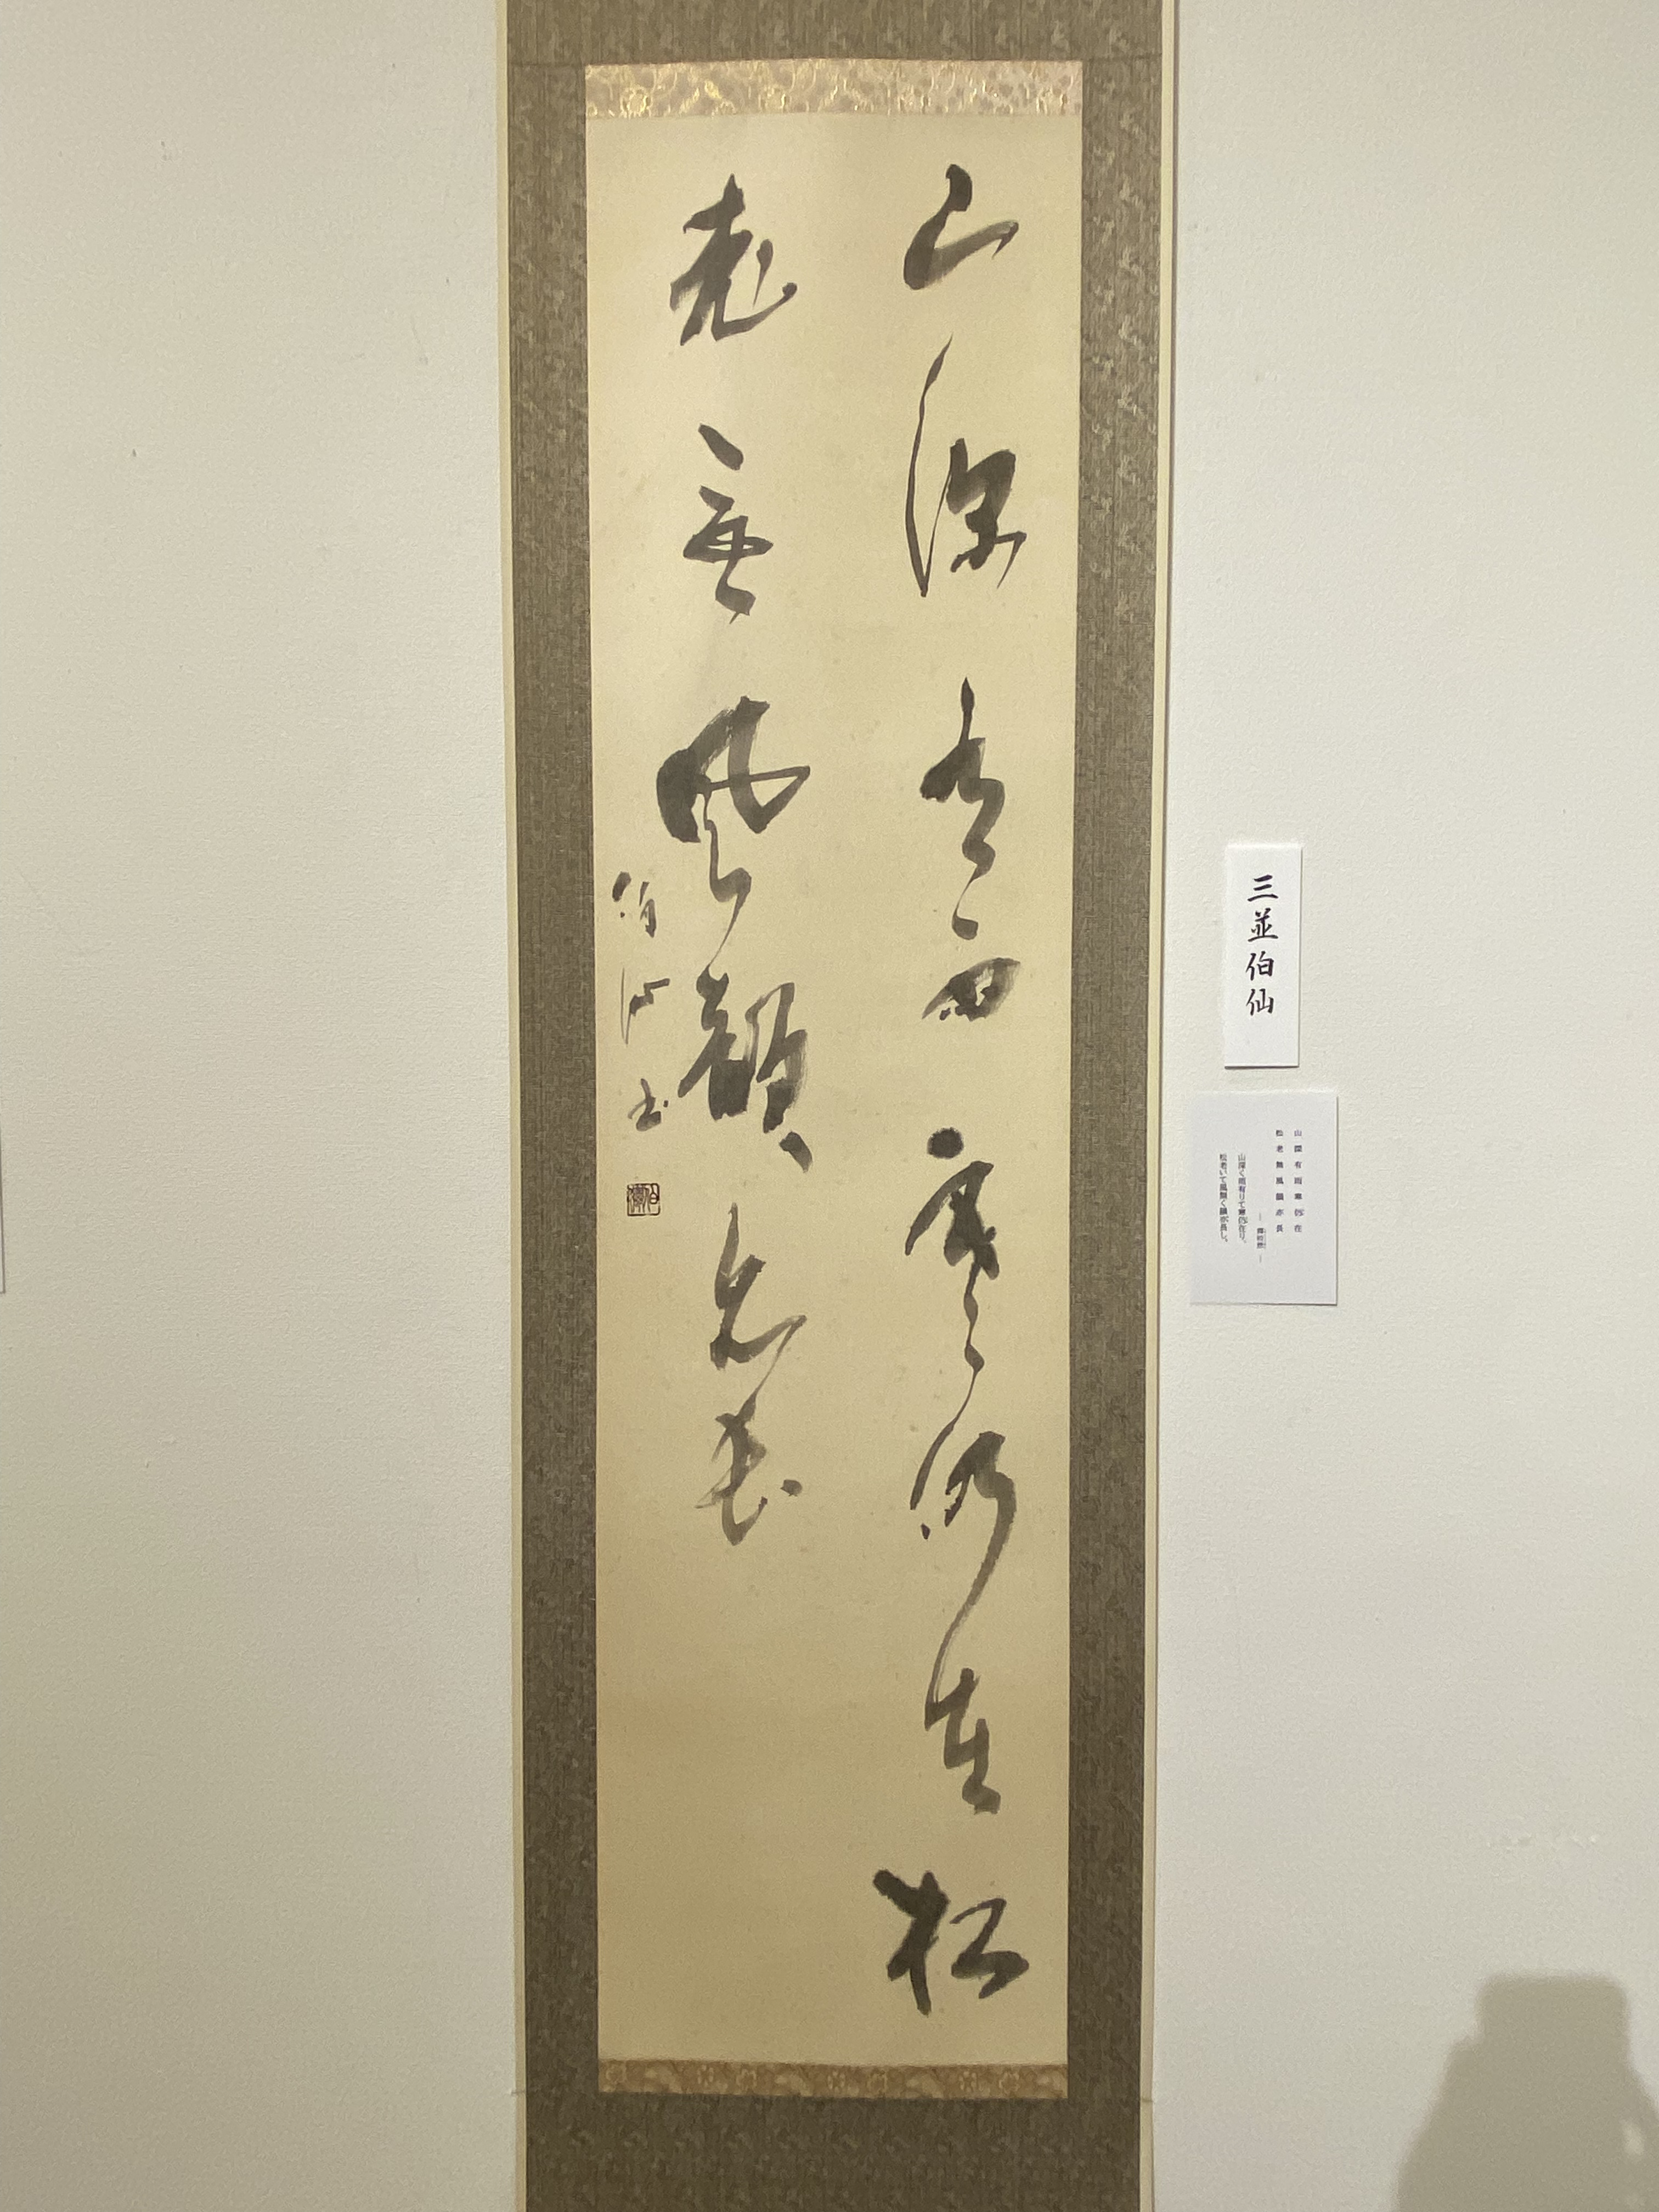 山深有雨寒仍在松
老無風韻亦長
伯仙書
三並伯仙
山深有雨寒仍在
松老無風韻亦長
山深く雨有りて寒仍在り。
松老いて風無く韻亦長し。